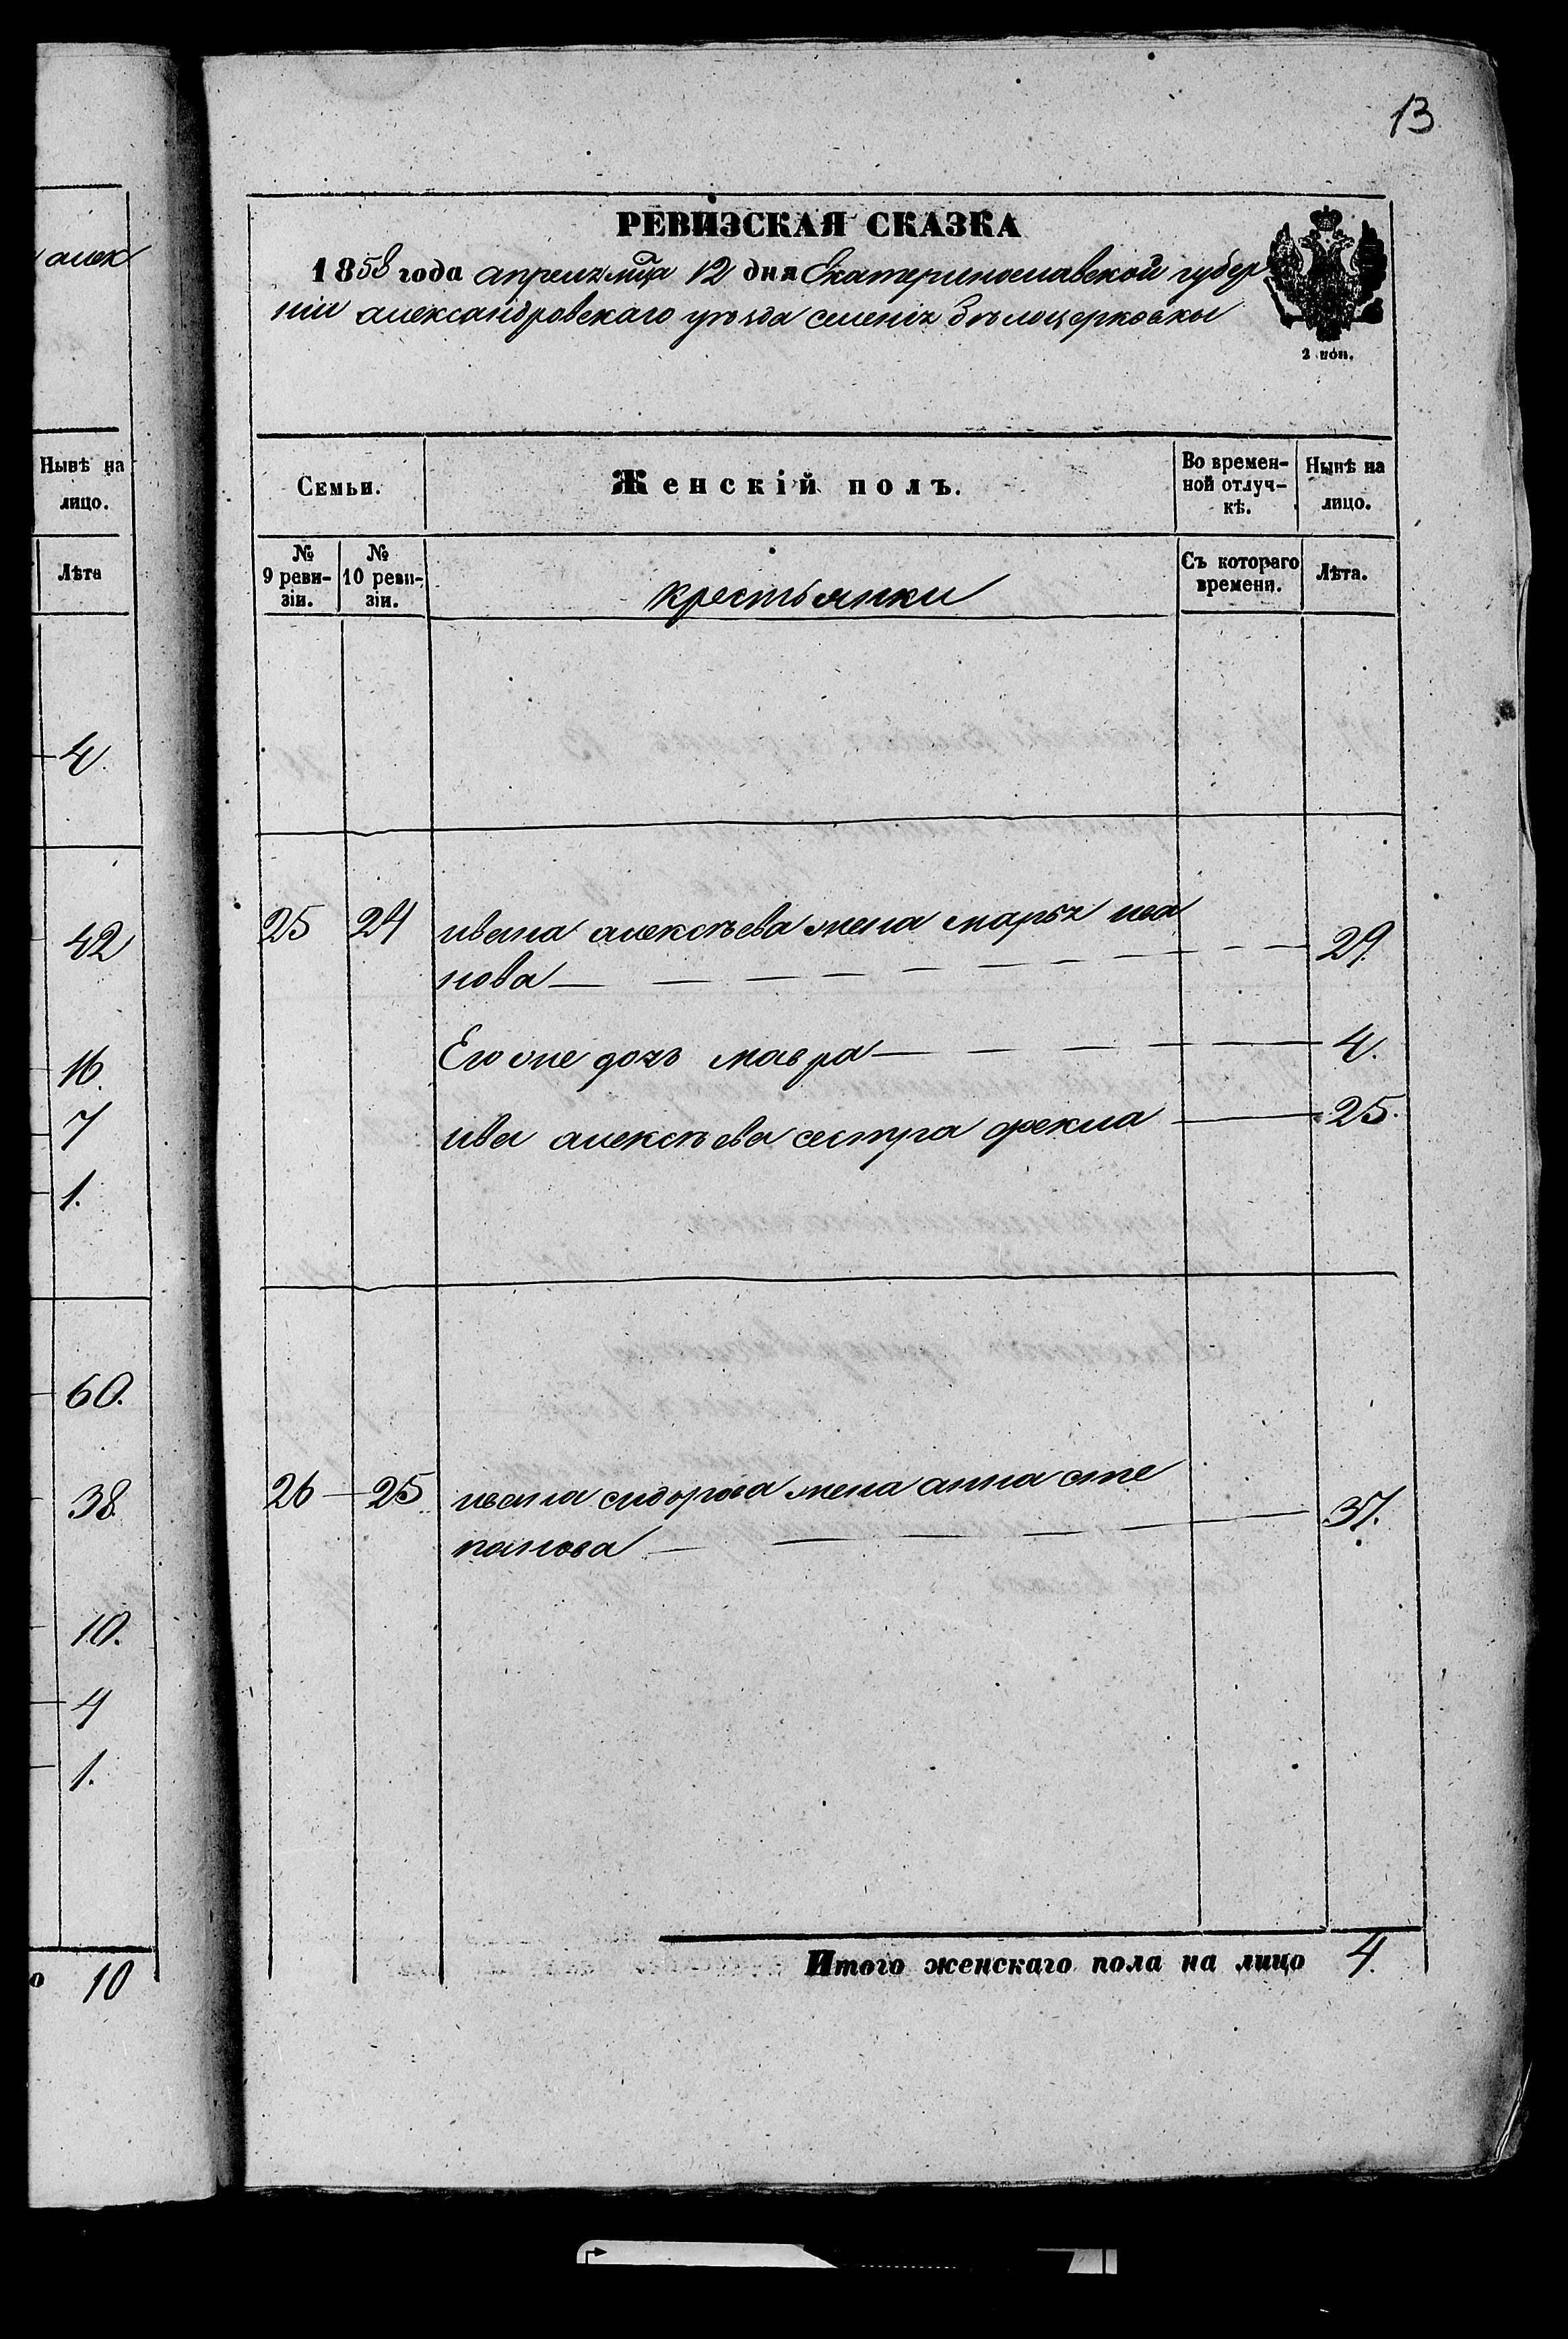 алек
Нынѣ на
лицо.
Лѣта
4.
42
16.
7
1.
60.
38.
10.
4
1.
о 10
13
РЕВИЗСКАЯ СКАЗКА
1858 года апреля мца 12 дня Екатеринославской губер
нiи александровскаго уѣзда селенiя Бѣлоцерковки
2 коп.
Семьи.
Женскій полъ.
Во времен-
ной отлуч-
кѣ.
Нынѣ на
лицо.
№
9 реви-
зіи.
№
10 реви-
зіи.
крестьянки
Съ котораго
времени.
Лѣта.
25 24 ивана алексѣева жена марья ива
нова — 29.
Его же дочь мавра — 4.
ива алексѣева сестра фекла — 25.
26 — 25 ивана сидорова жена анна сте
панова — 37.
Итого женскаго пола на лицо 4.